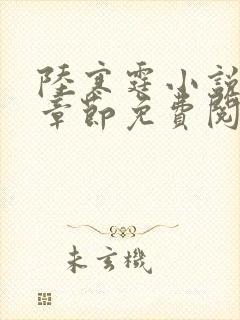 陸寒霆小說
章節免費閱
未玄機